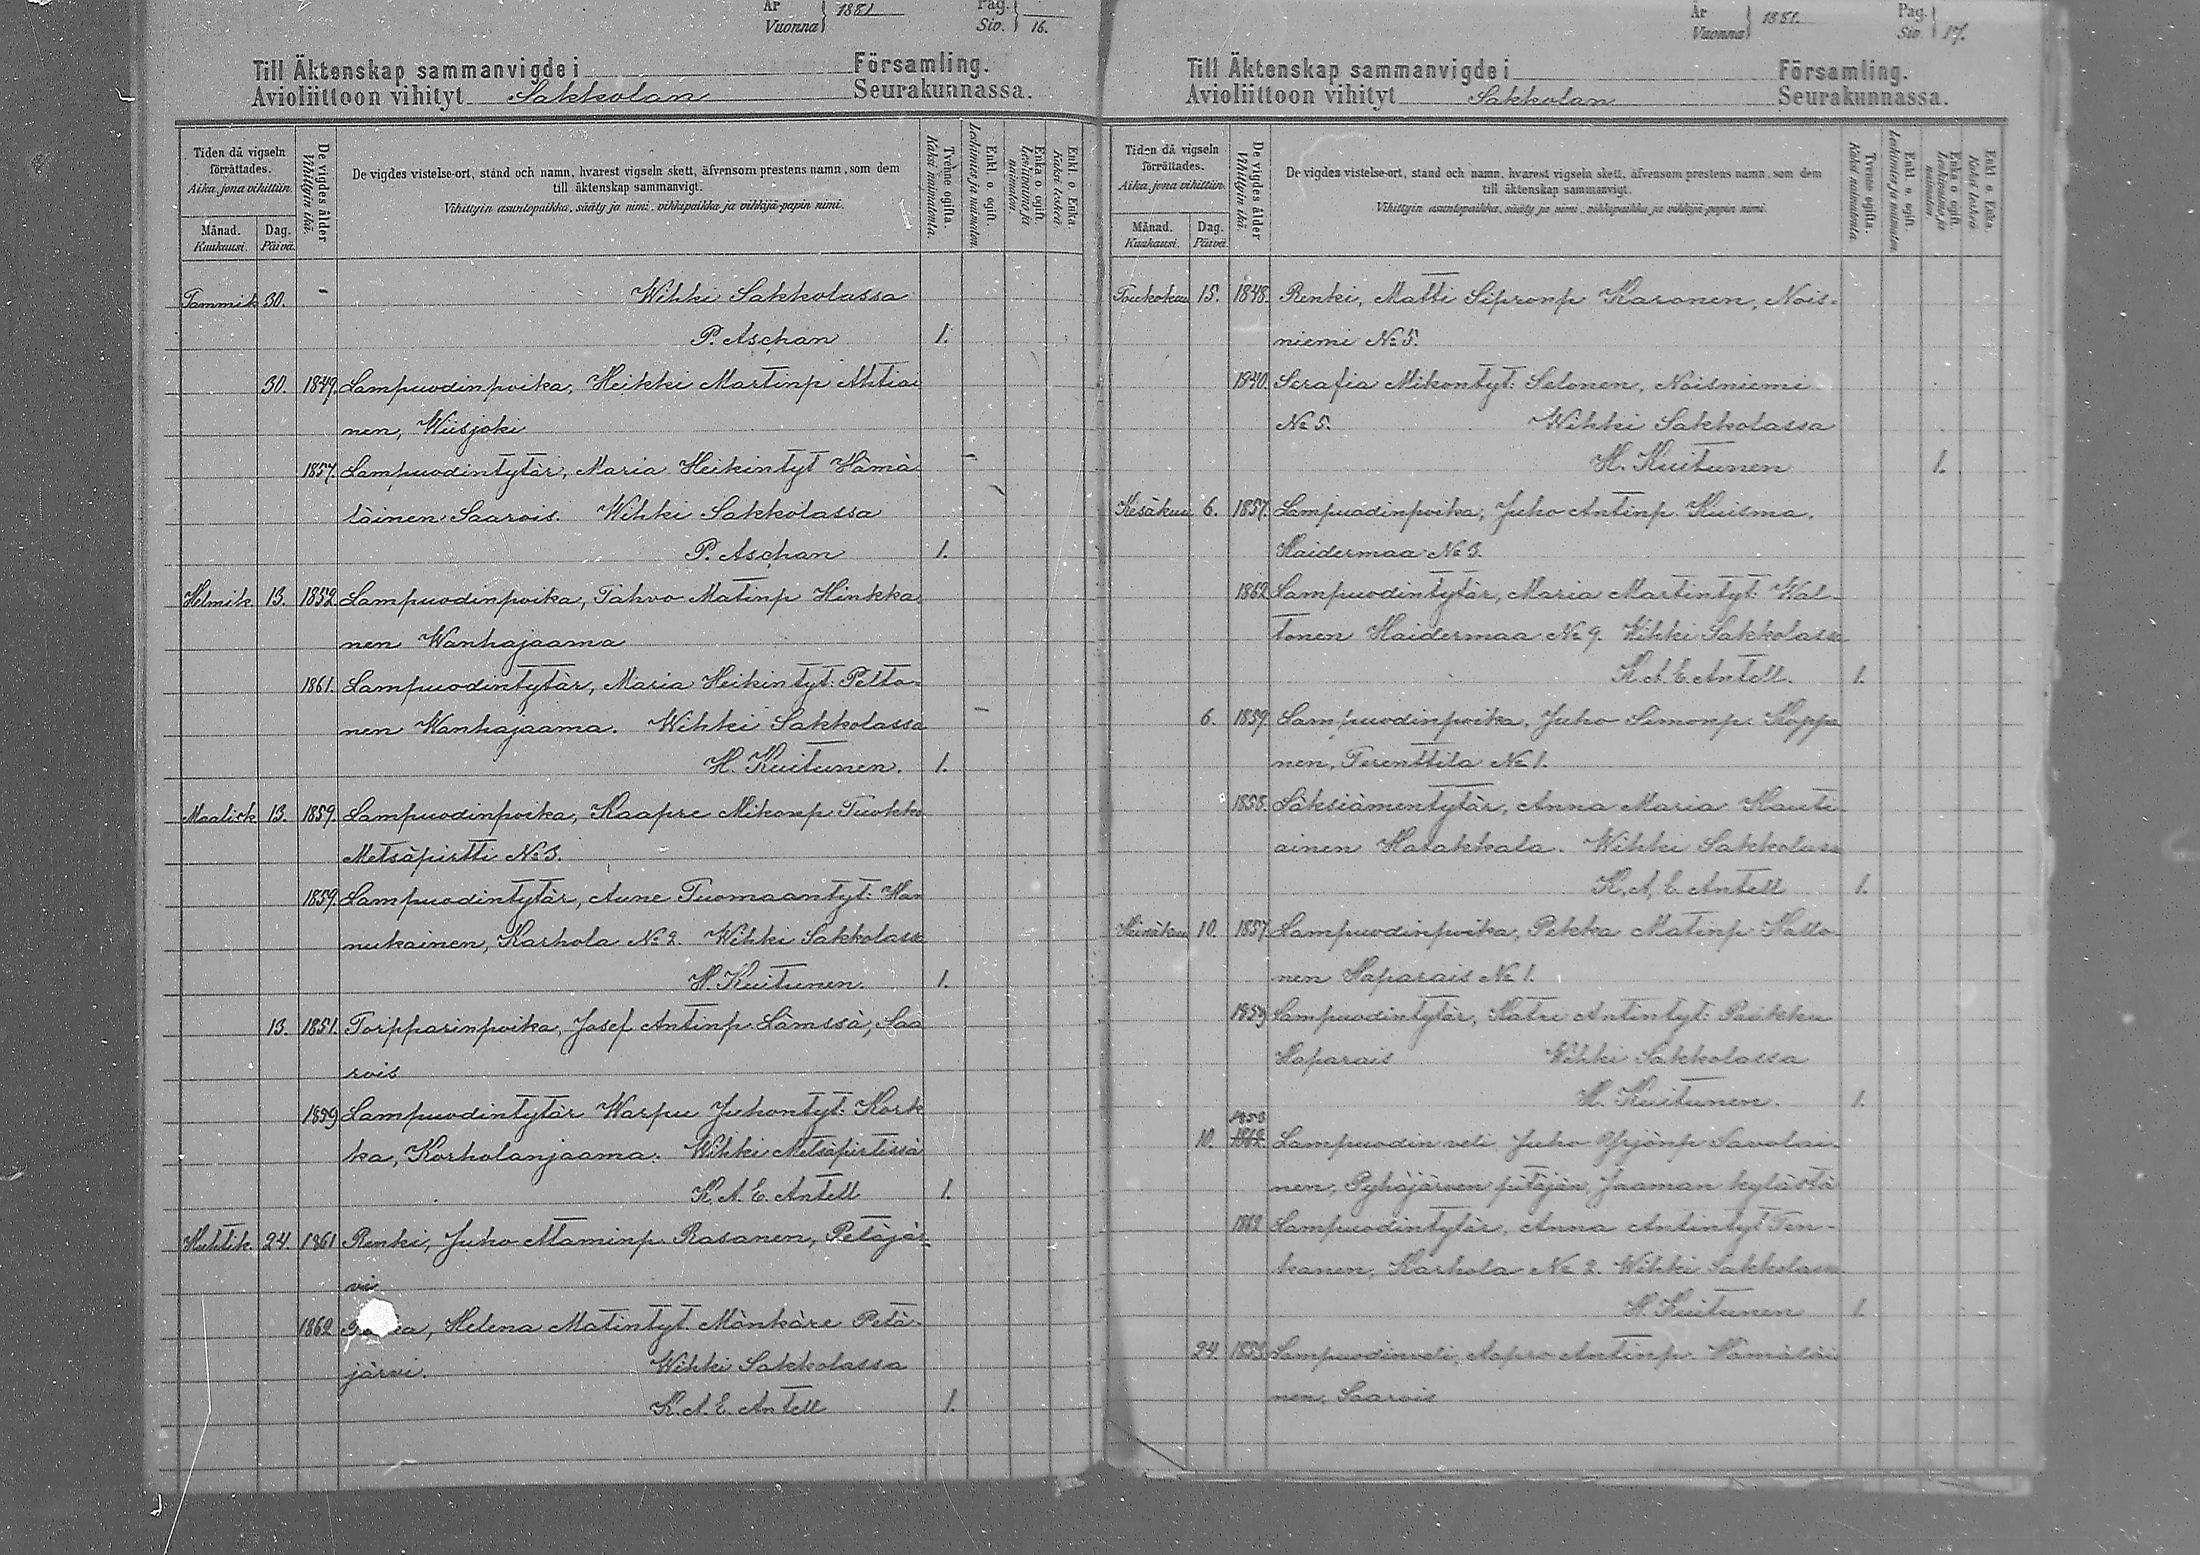 År Vuonna } 1881 Pag. Siv. } 16.
Till Äktenskap sammanvigde i Församling.
Avioliittoon vihityt Sakkolan Seurakunnassa.
Tiden då vigseln förrättades.
Aika, jona vihittiin.
Månad. Kuukausi.
Dag. Päivä.
De vigdes ålder
Vihittyin ikä.
De vigdes vistelse-ort, stånd och namn, hvarest vigseln skett, äfvensom prestens namn, som dem
till äktenskap sammanvigt.
Vihittyin asuntopaikka, sääty ja nimi, vihkipaikka ja vihkijä-papin nimi.
Tvenne ogifta.
Kaksi naimatonta.
Enkl. o. ogift.
Leskimies ja naimaton.
Enka o. ogift.
Leskivaimo ja naimaton.
Enkl. o. Enka.
Kaksi leskeä.
Tammik 30. Wihki Sakkolassa
P. Aschan 1.
30. 1849. Lampuodinpoika, Heikki Martinp Ahtiai
nen, Wiisjoki
1857. Lampuodintytär, Maria Heikintyt Hämä
läinen Saarois. Wihki Sakkolassa
P. Aschan 1.
Helmik. 13. 1852 Lampuodinpoika, Tahvo Matinp Hinkka
nen Wanhajaama
1861. Lampuodintytär, Maria Heikintyt: Pelto-
nen Wanhajaama. Wihki Sakkolassa
H. Kuitunen. 1.
Maalisk 13. 1859. Lampuodinpoika, Kaapre Mikonp Tuokko
Metsäpirtti No 3.
1859. Lampuodintytär, Aune Tuomaantyt: Han
nukainen, Karhola No 2. Wihki Sakkolassa
H. Kuitunen. 1.
13. 1851. Torpparinpoika, Josef Antinp. Lämssä, Saa
rois
1859 Lampuodintytär Warpu Juhontyt: Kork
ka, Korholanjaama. Wihki Metsäpirtissä
K. A. E. Antell 1.
Huhtik. 24. 1861 Renki, Juho Ataminp. Rasanen, Petäjär
vi
1862 Helena Matintyt. Mänkäre Petä-
järvi. Wihki Sakkolassa
K. A. E. Antell 1.
År Vuonna } 1881. Pag. Siv. } 17.
Till Äktenskap sammanvigde i Församling.
Avioliittoon vihityt Sakkolan Seurakunnassa.
Tiden då vigseln förrättades.
Aika, jona vihittiin.
Månad. Kuukausi.
Dag. Päivä.
De vigdes ålder
Vihittyin ikä.
De vigdes vistelse-ort, stånd och namn, hvarest vigseln skett, äfvensom prestens namn, som dem
till äktenskap sammanvigt.
Vihittyin asuntopaikka, sääty ja nimi, vihkipaikka ja vihkijä-papin nimi.
Tvenne ogifta.
Kaksi naimatonta.
Enkl. o. ogift.
Leskimies ja naimaton.
Enka o. ogift.
Leskivaimo ja naimaton.
Enkl. o. Enka.
Kaksi leskeä.
Toukokuu 15. 1848. Renki, Matti Sipronp Karonen, Nois-
niemi No 5.
1840. Serafia Mikontyt: Selonen, Noisniemi
No 5. Wihki Sakkolassa
H. Kuitunen 1.
Kesäkuu 6. 1857. Lampuodinpoika, Juho Antinp. Kuisma.
Haidermaa No 3.
1862 Lampuodintytär, Maria Martintyt: Wal-
tonen Haidermaa No 9. Wihki Sakkolassa
K. A. E. Antell. 1.
6. 1859. Lampuodinpoika, Juho Simonp. Koppa
nen, Terenttilä No 1.
1858. Läksiämentytär, Anna Maria Kauti
ainen Harakkala. Wihki Sakkolassa
K. A. E. Antell 1.
Heinäkuu 10. 1857. Lampuodinpoika, Pekka Matinp. Hatto-
nen Haparais No 1.
1859 Lampuodintytär, Katri Antintyt: Paukku
Haparais Wihki Sakkolassa
H. Kuitunen. 1.
1858
10. 1862. Lampuodin veli, Juho Yrjönp Savolai-
nen, Pyhäjärven pitäjän, Jaaman kylästä
1862 Lampuodintytär, Anna Antintyt Ten-
kanen, Karhola No 2. Wihki Sakkolassa
H. Kuitunen 1.
24. 1853. Lampuodinveli, Aapro Antinp. Hämäläi
nen, Saarois